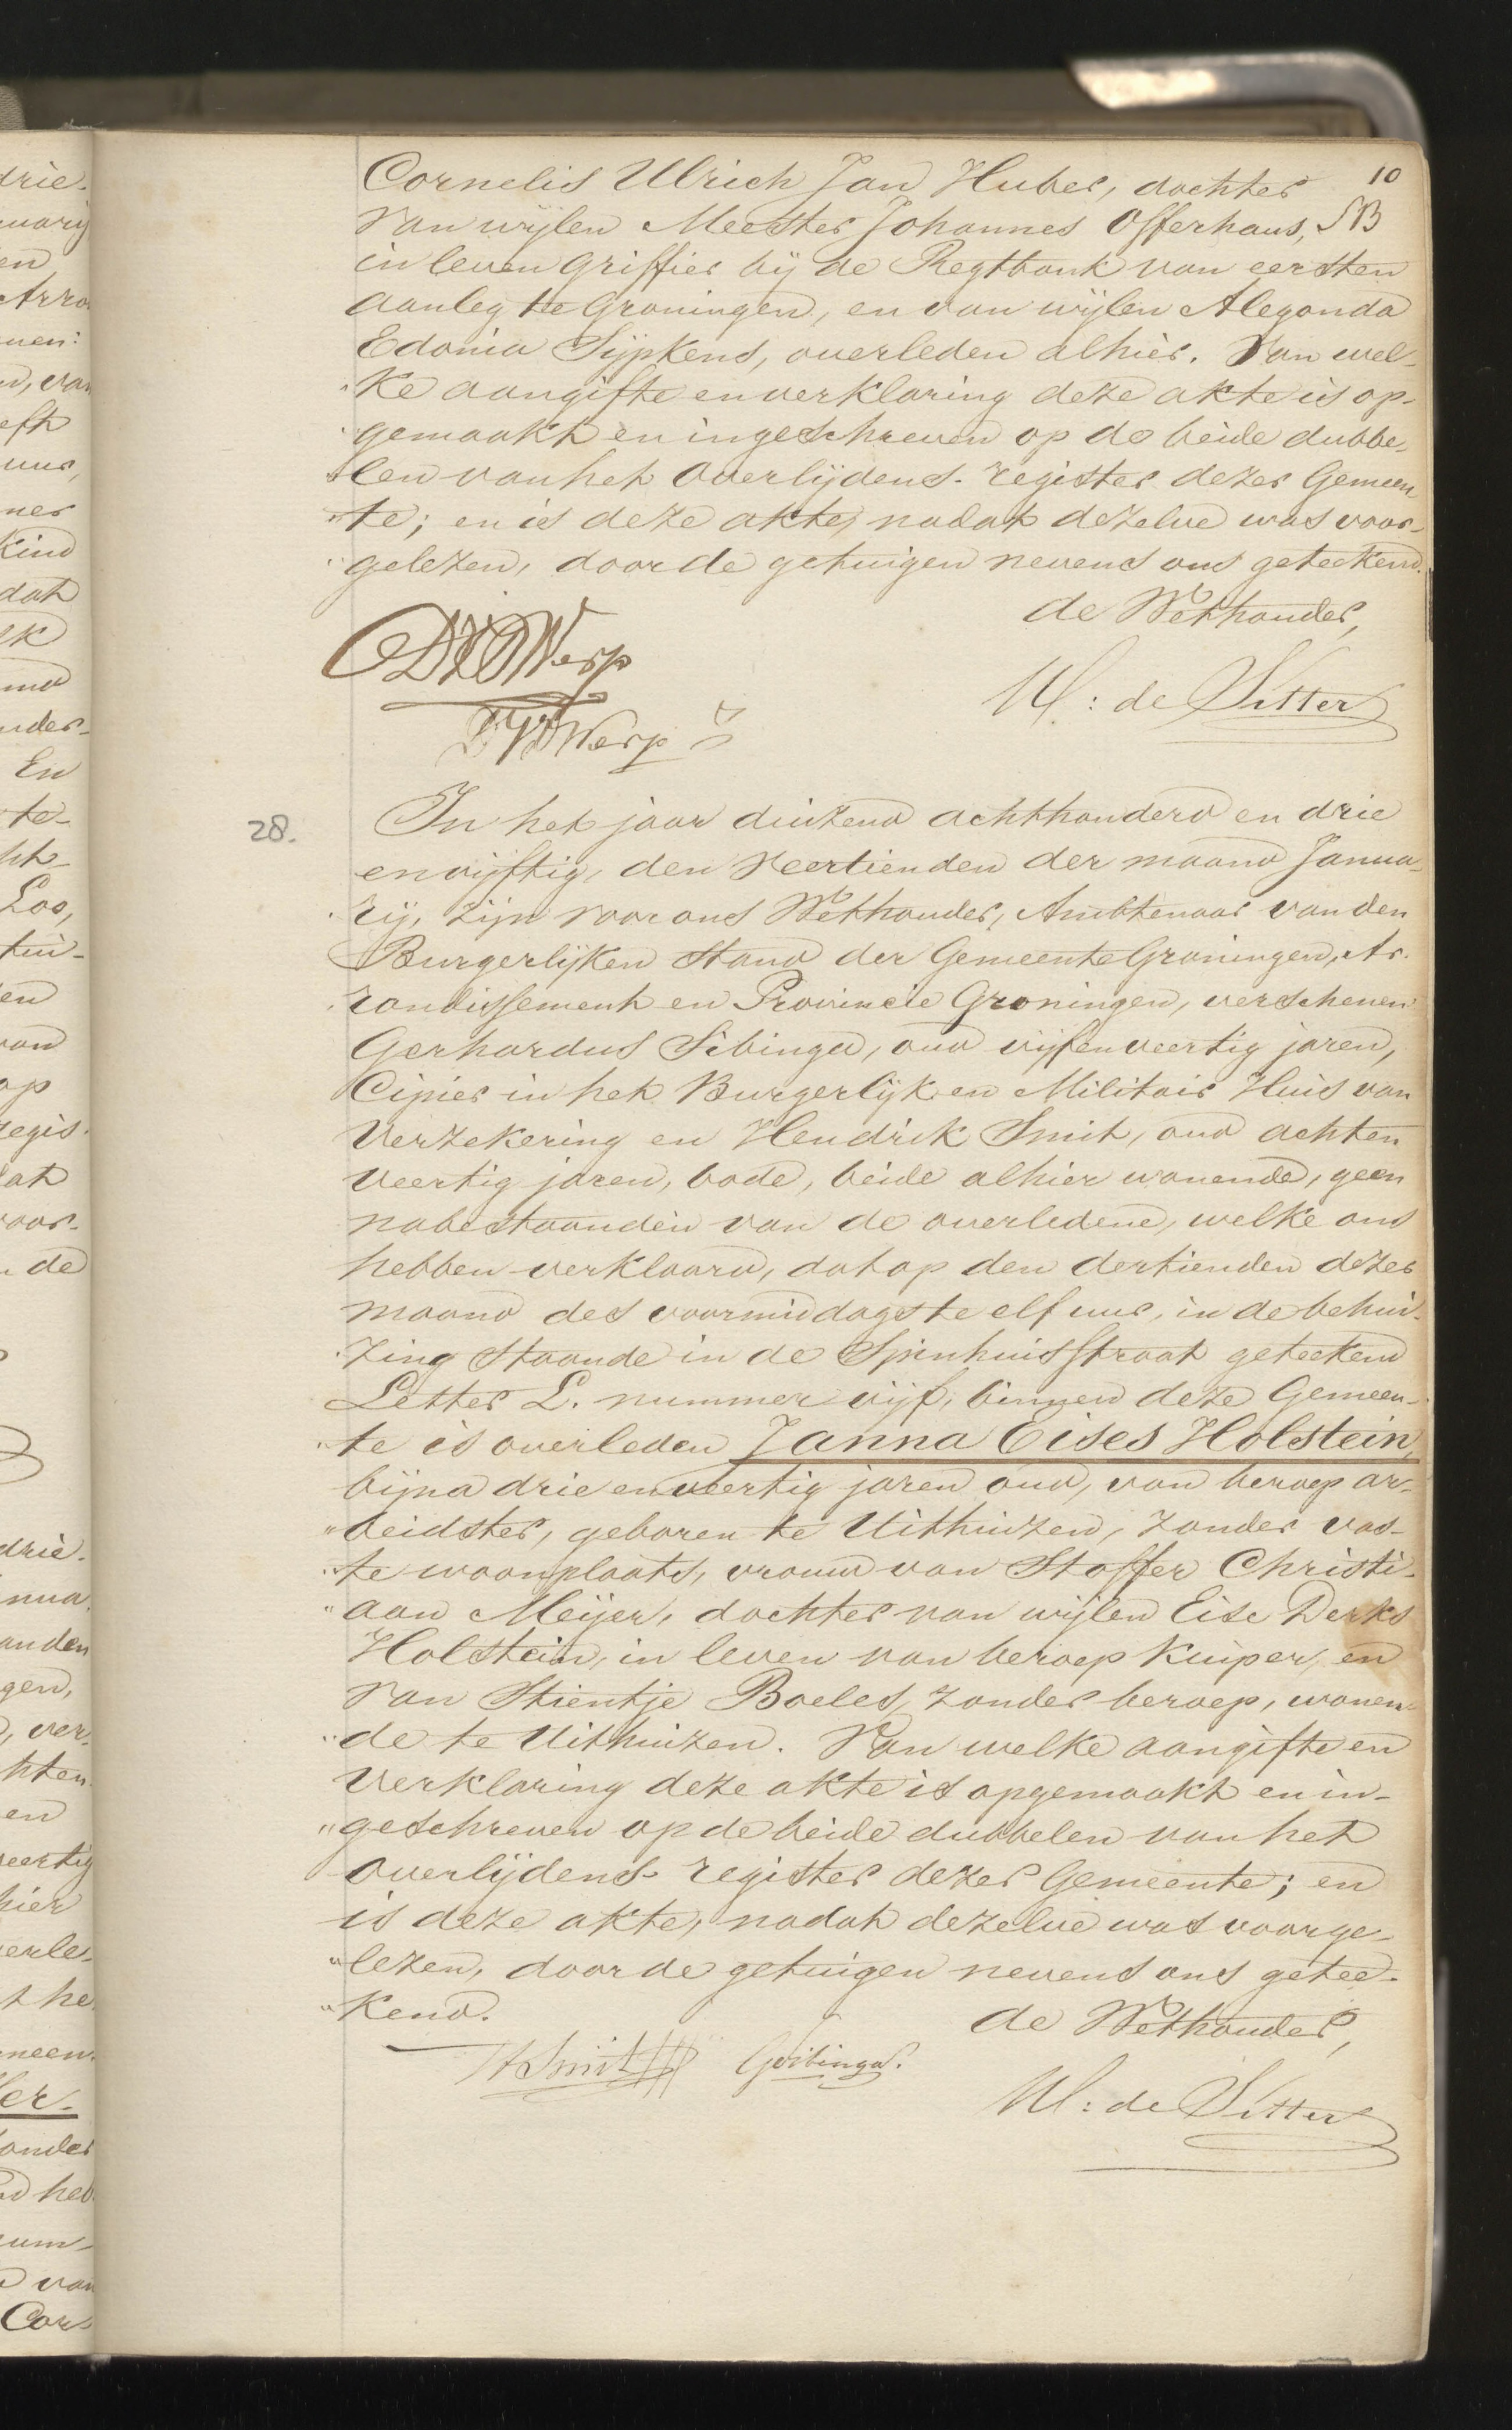 10
SB
Cornelis Ulrich Jan Huber, dochter
van wijlen Meester Johannes Offerhaus,
in leven Griffier bij de Regtbank van eersten
aanleg te Groningen, en van wijlen Alegonda
Edonia Sijpkens, overleden alhier. Van wel-
"ke aangifte en verklaring deze akte is op-
"gemaakt en ingeschreven op de beide dubbe-
"len van het Overlijdens-register dezer Gemeen
"te; en is deze akte, nadat dezelve was voor-
"gelezen, door de getuigen nevens ons geteekend.
de Wethouder,
W: de Sitter
28.
In het jaar duizend achthonderd en drie
en vijftig, den veertienden der maand Janua-
"rij, zijn voor ons Wethouder, Ambtenaar van den
Burgerlijken Stand der Gemeente Groningen, Ar-
"rondissement en Provincie Groningen, verschenen
Gerhardus Sibinga, oud vijfenveertig jaren,
Cipier in het Burgerlijk en Militair Huis van
Verzekering en Hendrik Smit, oud achten
veertig jaren, bode, beide alhier wonende, geen
nabestaanden van de overledene, welke ons
hebben verklaard, dat op den dertienden dezer
maand des voormiddags te elf uur, in de behui-
"zing staande in de Spinhuisstraat geteekend
Letter L. nummer vijf, binnen deze Gemeen-
"te is overleden Janna Eises Holstein,
bijna drie en veertig jaren oud, van beroep ar-
"beidster, geboren te Uithuizen, zonder vas-
"te woonplaats, vrouw van Stoffer Christi-
"aan Meijer, dochter van wijlen Eise Derks
Holstein, in leven van beroep Kuiper, en
van Stientje Boeles, zonder beroep, wonen-
"de te Uithuizen. Van welke aangifte en
verklaring deze akte is opgemaakt en in-
"geschreven op de beide dubbelen van het
Overlijdens-register dezer Gemeente; en
is deze akte, nadat dezelve was voorge-
"lezen, door de getuigen nevens ons getee-
"kend.
de Wethouder,
HSmit GSibinga.
W: de Sitter